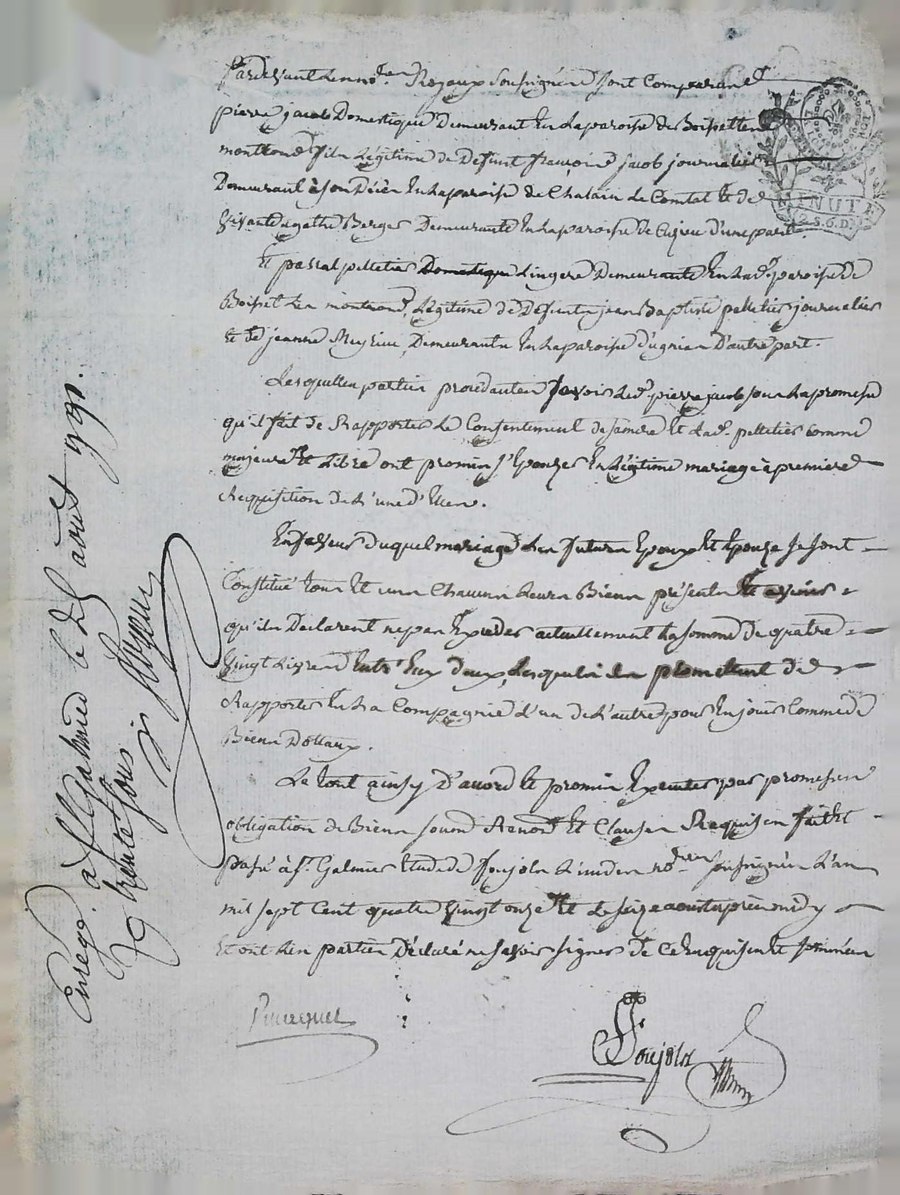 Pardevant les no.res Royaux soussignés sont Comparus
pierre jacob Domestique Demeurant En la paroisse de Boisset les
montrond fils Légitime de Defunt françois jacob journalier
Demeurant à son Décès En la paroisse de Chalain Le Comtal Et de
vivante agathe Berger Demeurante En la paroisse de Cuzieu d'une part.
Et pascal pelletier Domestique Lingere Demeurante En lad. paroisse de
Boisset Les montrond, Légitime de Defunt jean Baptiste pelletier journalier
Et de jeanne Demeurante En la paroisse d'ugnias D'autre part.
Lesquelles parties procedantes savoir Led. pierre jacob sous la promesse
qu'il fait de Rapporter Le Consentement de sa mere Et lad. pelletier comme
majeure Et Libre ont promis s'Epouser En Légitime mariage à premiere
Requisition de L'une d'Elles.
En faveur duquel mariage Les futurs Epoux Et Epouse se sont
Constitué tous Et uns Chacuns Leurs Biens présents Et avenirs
qu'ils Déclarent ne pas Exceder actuellement La somme de quatre
vingt Livres Entr'Eux deux, Lesquels ils promettent de
Rapporter En La Compagnie L'un de L'autre pour En jouir Comme de
Biens Dottaux.
Le tout ainsy D'accord Et promis Executer par promesses
obligation de Biens soumd Renond Et Clauses Requises fait Et
passé à St. Galmier Etude de Soujols L'un des no.res soussignés L'an
mil sept Cent quatre vingt onze Et Le seize aoust après midy
Et ont Les parties Déclaré ne savoir signer de Ce Enquises Et sommées
Soujols
MINUTE
2.S.6.D.
Enregé. à St Galmier le 25 août 1791.
R trente sous